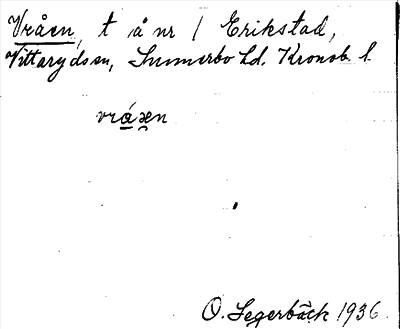 Vråen, t å nr 1 Erikstad,
Vittaryds sn, Sunnerbo hd. Kronob. l.
vråæn
O. Segerbäck 1936